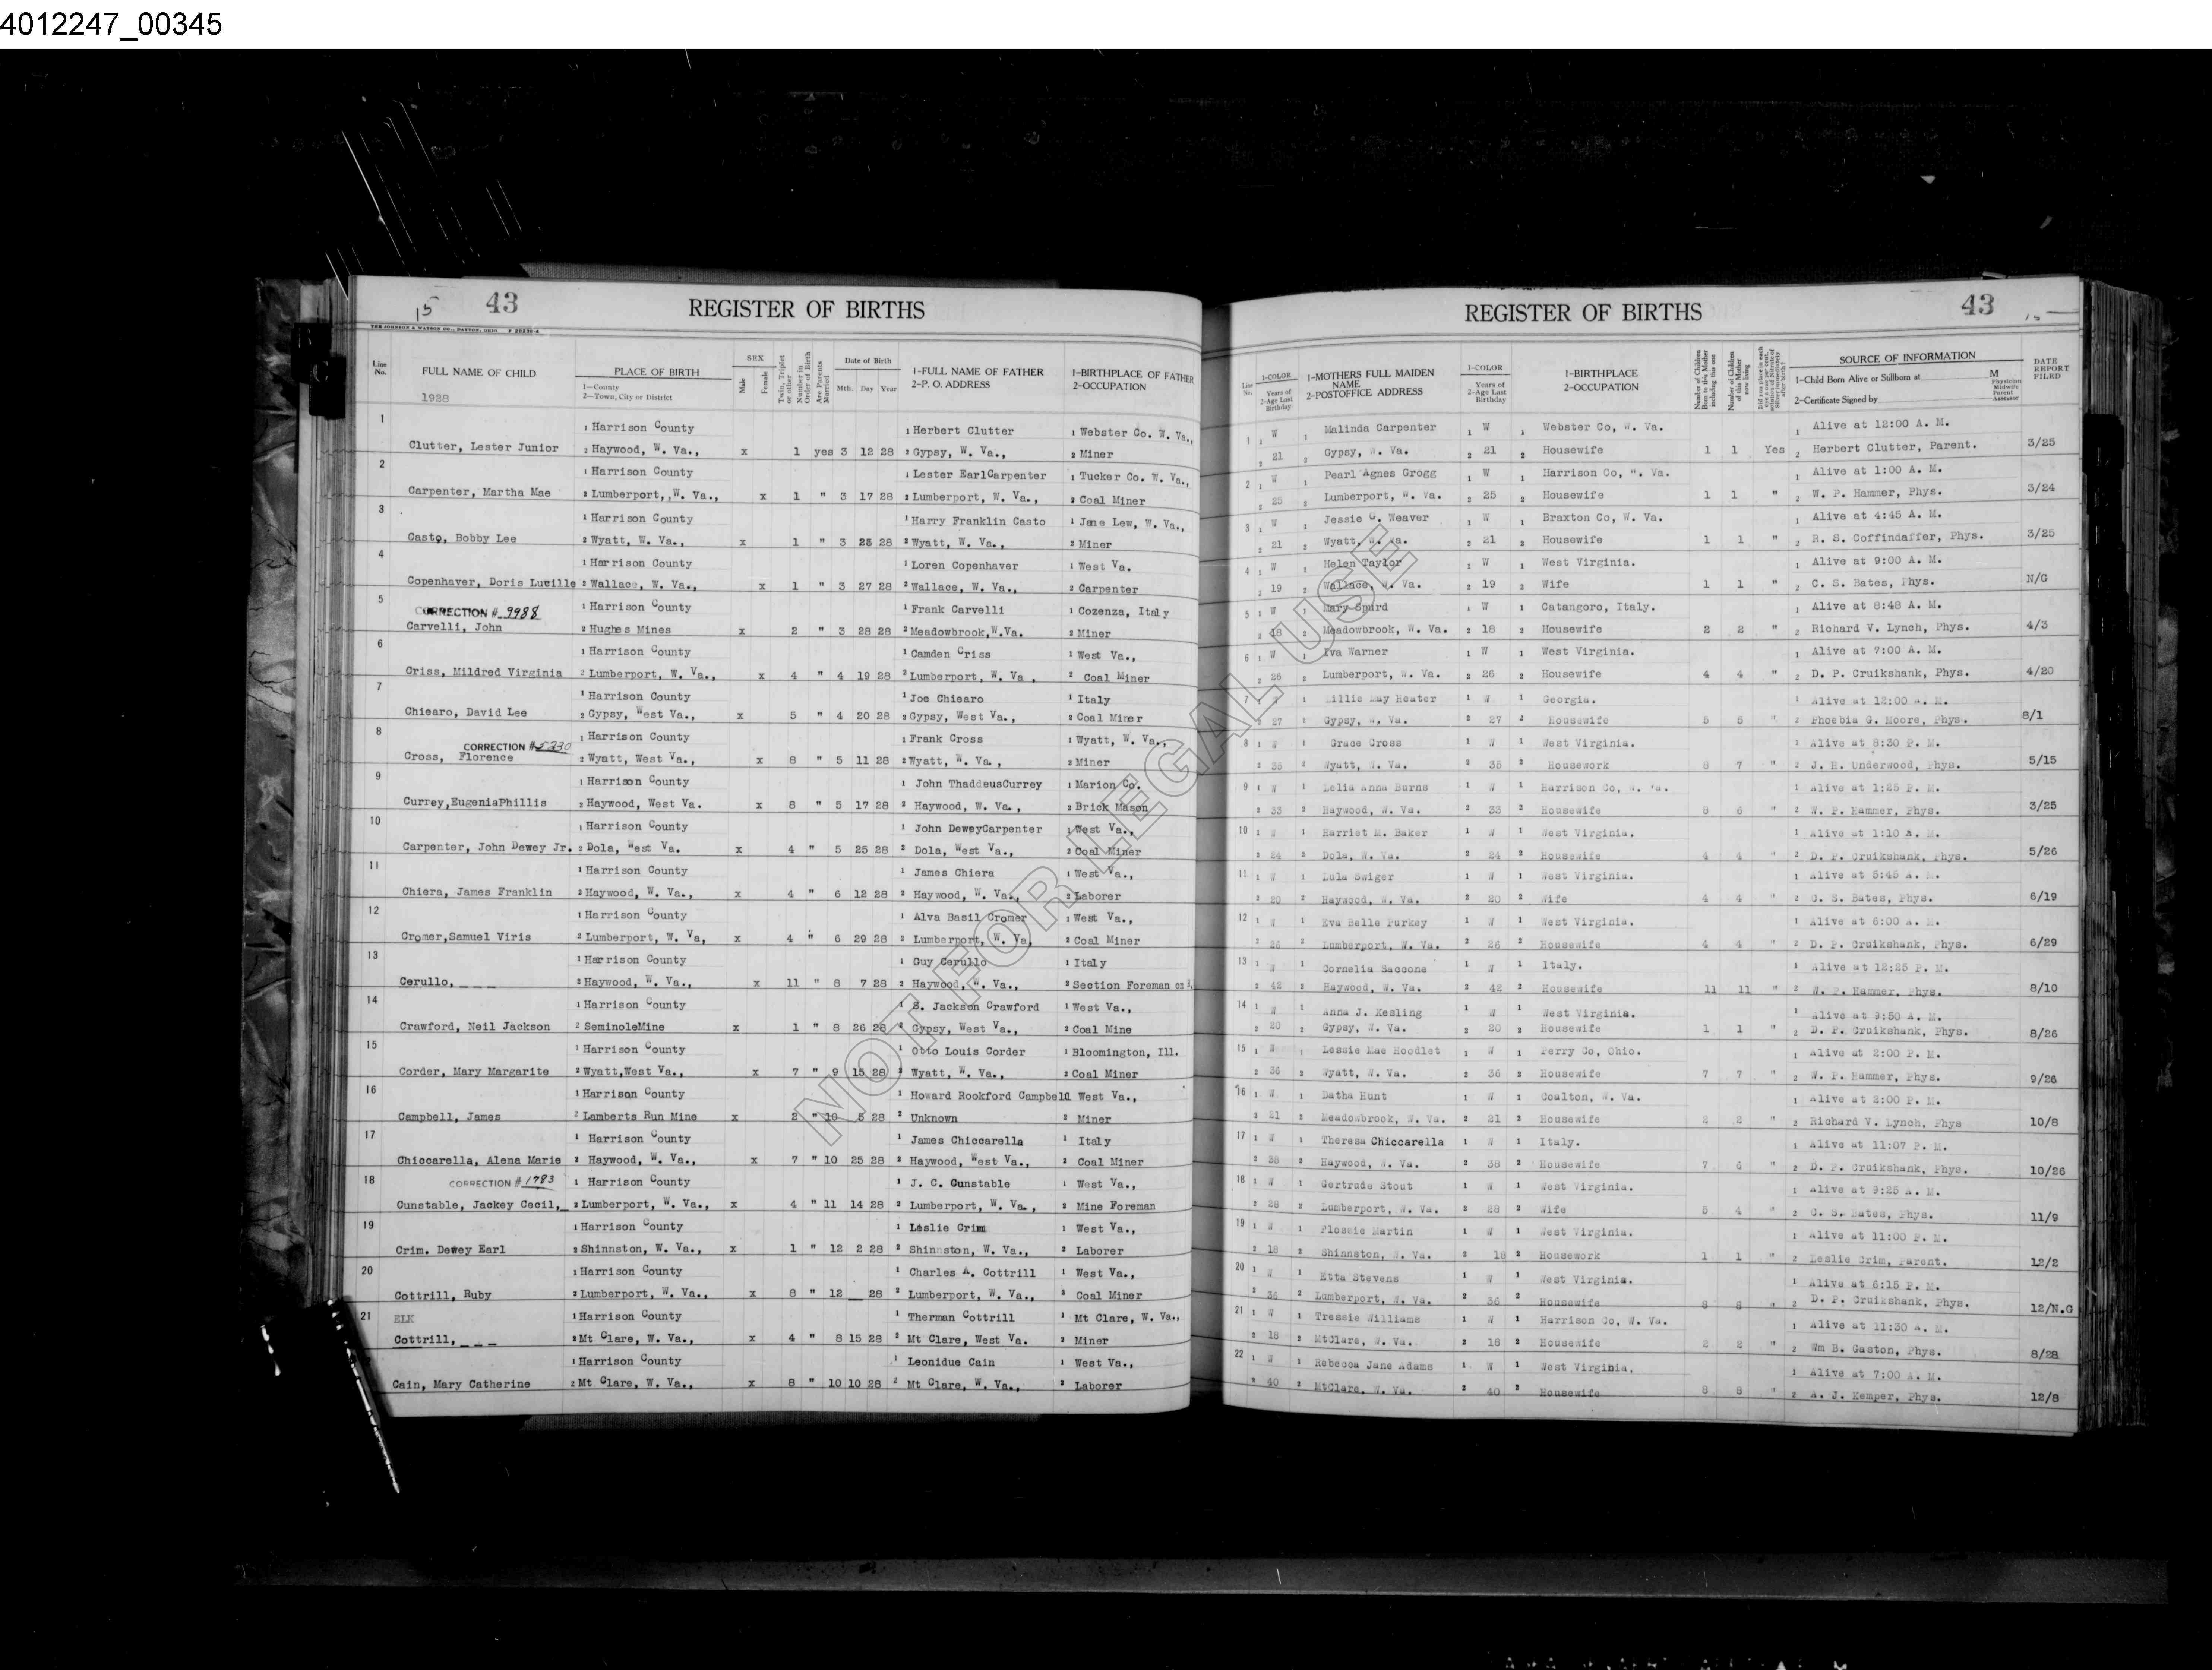 4012247_00345
15 43 REGISTER OF BIRTHS
THE JOHNSON & WATSON CO., DAYTON, OHIO
Line No. FULL NAME OF CHILD PLACE OF BIRTH SEX Twin, Triplet or other Number in Order of Birth Are Parents Married Date of Birth 1-FULL NAME OF FATHER 1-BIRTHPLACE OF FATHER
1928 1-County 2-Town, City or District Male Female Mth. Day Year 2-P. O. ADDRESS 2-OCCUPATION
1 1 Harrison County 1 Herbert Clutter 1 Webster Co. W. Va.,
Clutter, Lester Junior 2 Haywood, W. Va., x 1 yes 3 12 28 2 Gypsy, W. Va., 2 Miner
2 1 Harrison County 1 Lester EarlCarpenter 1 Tucker Co. W. Va.,
Carpenter, Martha Mae 2 Lumberport,,W. Va., x 1 " 3 17 28 2 Lumberport, W. Va., 2 Coal Miner
3 1 Harrison County 1 Harry Franklin Casto 1 Jane Lew, W. Va.,
Casto, Bobby Lee 2 Wyatt, W. Va., x 1 " 3 25 28 2 Wyatt, W. Va., 2 Miner
4 1 Harrison County 1 Loren Copenhaver 1 West Va.
Copenhaver, Doris Lucille 2 Wallace, W. Va., x 1 " 3 27 28 2 Wallace, W. Va., 2 Carpenter
5 CORRECTION # 9988 1 Harrison County 1 Frank Carvelli 1 Cozenza, Italy
Carvelli, John 2 Hughes Mines x 2 " 3 28 28 2 Meadowbrook,W.Va. 2 Miner
6 1 Harrison County 1 Camden Criss 1 West Va.,
Criss, Mildred Virginia 2 Lumberport, W. Va., x 4 " 4 19 28 2 Lumberport, W. Va , 2 Coal Miner
7 1 Harrison County 1 Joe Chiearo 1 Italy
Chiearo, David Lee 2 Gypsy, West Va., x 5 " 4 20 28 2 Gypsy, West Va., 2 Coal Miner
8 CORRECTION # 1 Harrison County 1 Frank Cross 1 Wyatt, W. Va.,
Cross, Florence 2 Wyatt, West Va., x 8 " 5 11 28 2 Wyatt, W. Va., 2 Miner
9 1 Harrison County 1 John ThaddeusCurrey 1 Marion Co.
Currey,EugeniaPhillis 2 Haywood, West Va. x 8 " 5 17 28 2 Haywood, W. Va., 2 Brick Mason
10 1 Harrison County 1 John DeweyCarpenter 1 West Va.,
Carpenter, John Dewey Jr. 2 Dola, West Va. x 4 " 5 25 28 2 Dola, West Va., 2 Coal Miner
11 1 Harrison County 1 James Chiera 1 West Va.,
Chiera, James Franklin 2 Haywood, W. Va., x 4 " 6 12 28 2 Haywood, W. Va., 2 Laborer
12 1 Harrison County 1 Alva Basil Cromer 1 West Va.,
Cromer,Samuel Viris 2 Lumberport, W. Va, x 4 " 6 29 28 2 Lumberport, W. Va, 2 Coal Miner
13 1 Harrison County 1 Guy Cerullo 1 Italy
Cerullo, _ _ _ 2 Haywood, W. Va., x 11 " 8 7 28 2 Haywood, W. Va., 2 Section Foreman on
14 1 Harrison County 1 S. Jackson Crawford 1 West Va.,
Crawford, Neil Jackson 2 SeminoleMine x 1 " 8 26 28 2 Gypsy, West Va., 2 Coal Mine
15 1 Harrison County 1 Otto Louis Corder 1 Bloomington, Ill.
Corder, Mary Margarite 2 Wyatt,West Va., x 7 " 9 15 28 2 Wyatt, W. Va., 2 Coal Miner
16 1 Harrison County 1 Howard Rookford Campbell 1 West Va.,
Campbell, James 2 Lamberts Run Mine x 2 " 10 5 28 2 Unknown 2 Miner
17 1 Harrison County 1 James Chiccarella 1 Italy
Chiccarella, Alena Marie 2 Haywood, W. Va., x 7 " 10 25 28 2 Haywood, West Va., 2 Coal Miner
18 CORRECTION # 1783 1 Harrison County 1 J. C. Cunstable 1 West Va.,
Cunstable, Jackey Cecil,_ 2 Lumberport, W. Va., x 4 " 11 14 28 2 Lumberport, W. Va., 2 Mine Foreman
19 1 Harrison County 1 Leslie Crim 1 West Va.,
Crim. Dewey Earl 2 Shinnston, W. Va., x 1 " 12 2 28 2 Shinnston, W. Va., 2 Laborer
20 1 Harrison County 1 Charles A. Cottrill 1 West Va.,
Cottrill, Ruby 2 Lumberport, W. Va., x 8 " 12 __ 28 2 Lumberport, W. Va., 2 Coal Miner
21 ELK 1 Harrison County 1 Therman Cottrill 1 Mt Clare, W. Va.,
Cottrill, _ _ _ 2 Mt Clare, W. Va., x 4 " 8 15 28 2 Mt Clare, West Va. 2 Miner
1 Harrison County 1 Leonidue Cain 1 West Va.,
Cain, Mary Catherine 2 Mt Clare, W. Va., x 8 " 10 10 28 2 Mt Clare, W. Va., 2 Laborer
REGISTER OF BIRTHS 43
Line No. 1-COLOR 2-Age Last Birthday Years of 1-MOTHERS FULL MAIDEN NAME 2-POSTOFFICE ADDRESS 1-COLOR Years of 2-Age Last Birthday 1-BIRTHPLACE 2-OCCUPATION Number of Children Born to this Mother including this one Number of Children of this Mother now living SOURCE OF INFORMATION DATE REPORT FILED
1-Child Born Alive or Stillborn at M
2-Certificate Signed by Physician Midwife Parent Assessor
1 1 W 1 Malinda Carpenter 1 W 1 Webster Co, W. Va. 1 Alive at 12:00 A. M.
2 21 2 Gypsy, W. Va. 2 21 2 Housewife 1 1 Yes 2 Herbert Clutter, Parent. 3/25
2 1 W 1 Pearl Agnes Grogg 1 W 1 Harrison Co, W. Va. 1 Alive at 1:00 A. M.
2 25 2 Lumberport, W. Va. 2 25 2 Housewife 1 1 " 2 W. P. Hammer, Phys. 3/24
3 1 W 1 Jessie G. Weaver 1 W 1 Braxton Co, W. Va. 1 Alive at 4:45 A. M.
2 21 2 Wyatt, W. Va. 2 21 2 Housewife 1 1 " 2 R. S. Coffindaffer, Phys. 3/25
4 1 W 1 Helen Taylor 1 W 1 West Virginia. 1 Alive at 9:00 A. M.
2 19 2 Wallace, W. Va. 2 19 2 Wife 1 1 " 2 C. S. Bates, Phys. N/G
5 1 W 1 Mary Spurd 1 W 1 Catangoro, Italy. 1 Alive at 8:48 A. M.
2 18 2 Meadowbrook, W. Va. 2 18 2 Housewife 2 2 " 2 Richard V. Lynch, Phys. 4/3
6 1 W 1 Iva Warner 1 W 1 West Virginia. 1 Alive at 7:00 A. M.
2 26 2 Lumberport, W. Va. 2 26 2 Housewife 4 4 " 2 D. P. Cruikshank, Phys. 4/20
7 1 W 1 Lillie May Heater 1 W 1 Georgia. 1 Alive at 12:00 A. M.
2 27 2 Gypsy, W. Va. 2 27 2 Housewife 5 5 " 2 Phoebia G. Moore, Phys. 8/1
8 1 W 1 Grace Cross 1 W 1 West Virginia. 1 Alive at 8:30 P. M.
2 35 2 Wyatt, W. Va. 2 35 2 Housework 8 7 " 2 J. R. Underwood, Phys. 5/15
9 1 W 1 Lelia Anna Burns 1 W 1 Harrison Co, W. Va. 1 Alive at 1:25 P. M.
2 33 2 Haywood, W. Va. 2 33 2 Housewife 8 6 " 2 W. P. Hammer, Phys. 3/25
10 1 W 1 Harriet M. Baker 1 W 1 West Virginia. 1 Alive at 1:10 A. M.
2 24 2 Dola, W. Va. 2 24 2 Housewife 4 4 " 2 D. P. Cruikshank, Phys. 5/26
11 1 W 1 Lula Swiger 1 W 1 West Virginia. 1 Alive at 5:45 A. M.
2 20 2 Haywood, W. Va. 2 20 2 Wife 4 4 " 2 C. S. Bates, Phys. 6/19
12 1 W 1 Eva Belle Purkey 1 W 1 West Virginia. 1 Alive at 6:00 A. M.
2 26 2 Lumberport, W. Va. 2 26 2 Housewife 4 4 " 2 D. P. Cruikshank, Phys. 6/29
13 1 W 1 Cornelia Saccone 1 W 1 Italy. 1 Alive at 12:25 P. M.
2 42 2 Haywood, W. Va. 2 42 2 Housewife 11 11 " 2 W. P. Hammer, Phys. 8/10
14 1 W 1 Anna J. Kesling 1 W 1 West Virginia. 1 Alive at 9:50 A. M.
2 20 2 Gypsy, W. Va. 2 20 2 Housewife 1 1 " 2 D. P. Cruikshank, Phys. 8/26
15 1 W 1 Lessie Mae Hoodlet 1 W 1 Perry Co, Ohio. 1 Alive at 2:00 P. M.
2 36 2 Wyatt, W. Va. 2 36 2 Housewife 7 7 " 2 W. P. Hammer, Phys. 9/26
16 1 W 1 Datha Hunt 1 W 1 Coalton, W. Va. 1 Alive at 2:00 P. M.
2 21 2 Meadowbrook, W. Va. 2 21 2 Housewife 2 2 " 2 Richard V. Lynch, Phys 10/8
17 1 W 1 Theresa Chiccarella 1 W 1 Italy. 1 Alive at 11:07 P. M.
2 38 2 Haywood, W. Va. 2 38 2 Housewife 7 6 " 2 D. P. Cruikshank, Phys. 10/26
18 1 W 1 Gertrude Stout 1 W 1 West Virginia. 1 Alive at 9:25 A. M.
2 28 2 Lumberport, W. Va. 2 28 2 Wife 5 4 " 2 C. S. Bates, Phys. 11/9
19 1 W 1 Flossie Martin 1 W 1 West Virginia. 1 Alive at 11:00 P. M.
2 18 2 Shinnston, W. Va. 2 18 2 Housework 1 1 " 2 Leslie Crim, Parent. 12/2
20 1 W 1 Etta Stevens 1 W 1 West Virginia. 1 Alive at 6:15 P. M.
2 36 2 Lumberport, W. Va. 2 36 2 Housewife 8 8 " 2 D. P. Cruikshank, Phys. 12/N.G
21 1 W 1 Tressie Williams 1 W 1 Harrison Co, W. Va. 1 Alive at 11:30 A. M.
2 18 2 MtClare, W. Va. 2 18 2 Housewife 2 2 " 2 Wm B. Gaston, Phys. 8/28
22 1 W 1 Rebecca Jane Adams 1 W 1 West Virginia, 1 Alive at 7:00 A. M.
2 40 2 MtClare, W. Va. 2 40 2 Housewife 8 8 " 2 A. J. Kemper, Phys. 12/8
NOT FOR LEGAL USE